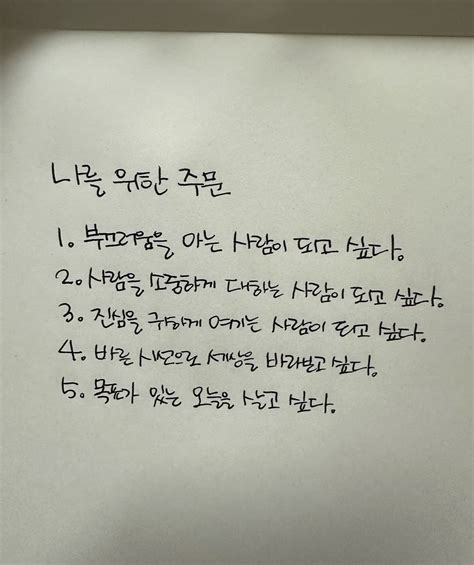 나를 위한 주문
1. 부끄러움을 아는 사람이 되고 싶다.
2. 사람을 소중하게 대하는 사람이 되고 싶다.
3. 진심을 귀하게 여기는 사람이 되고 싶다.
4. 바른 시선으로 세상을 바라보고 싶다.
5. 목표가 있는 오늘을 살고 싶다.